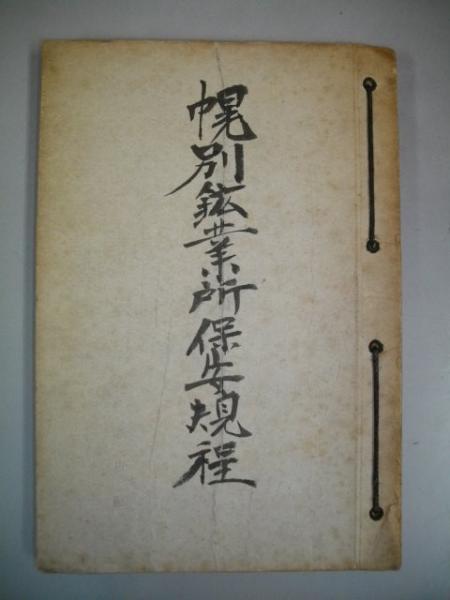 幌別鉱業所保安規程